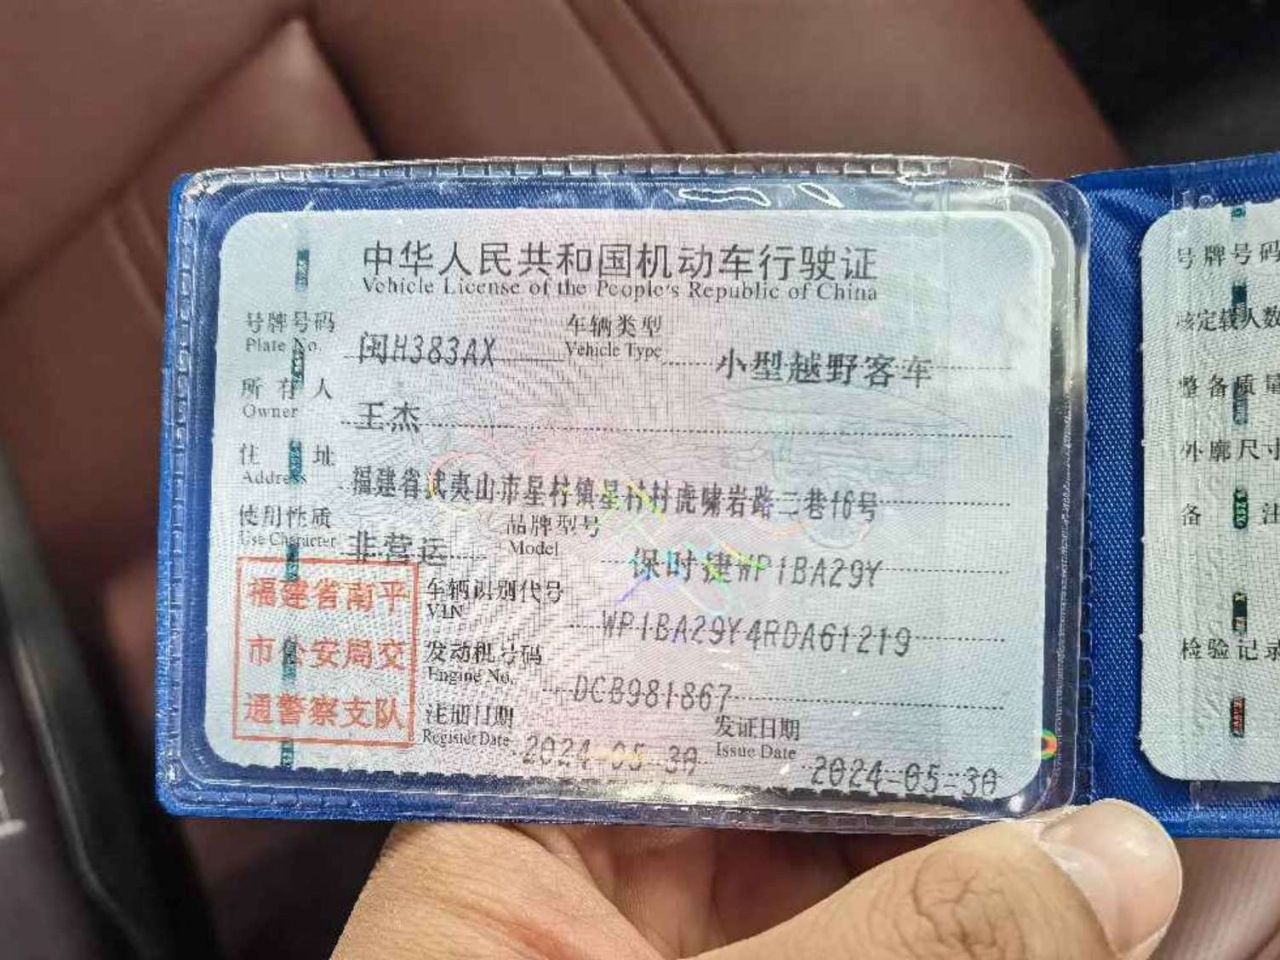 中华人民共和国机动车行驶证
Vehicle License of the People's Republic of China
号牌号码 闽H383AX 车辆类型 小型越野客车
Plate No. Vehicle Type
所有人 王杰
Owner
住址 福建省武夷山市星村镇星村村虎啸岩路二巷16号
Address
使用性质 非营运 品牌型号 保时捷WP1BA29Y
Use Character Model
车辆识别代号 WP1BA29Y4RDA61219
VIN
发动机号码 DCB981867
Engine No.
注册日期 2024-05-30 发证日期 2024-05-30
Register Date Issue Date
福建省南平
市公安局交
通警察支队
号牌号码
核定载人数
整备质量
外廓尺寸
备注
检验记录